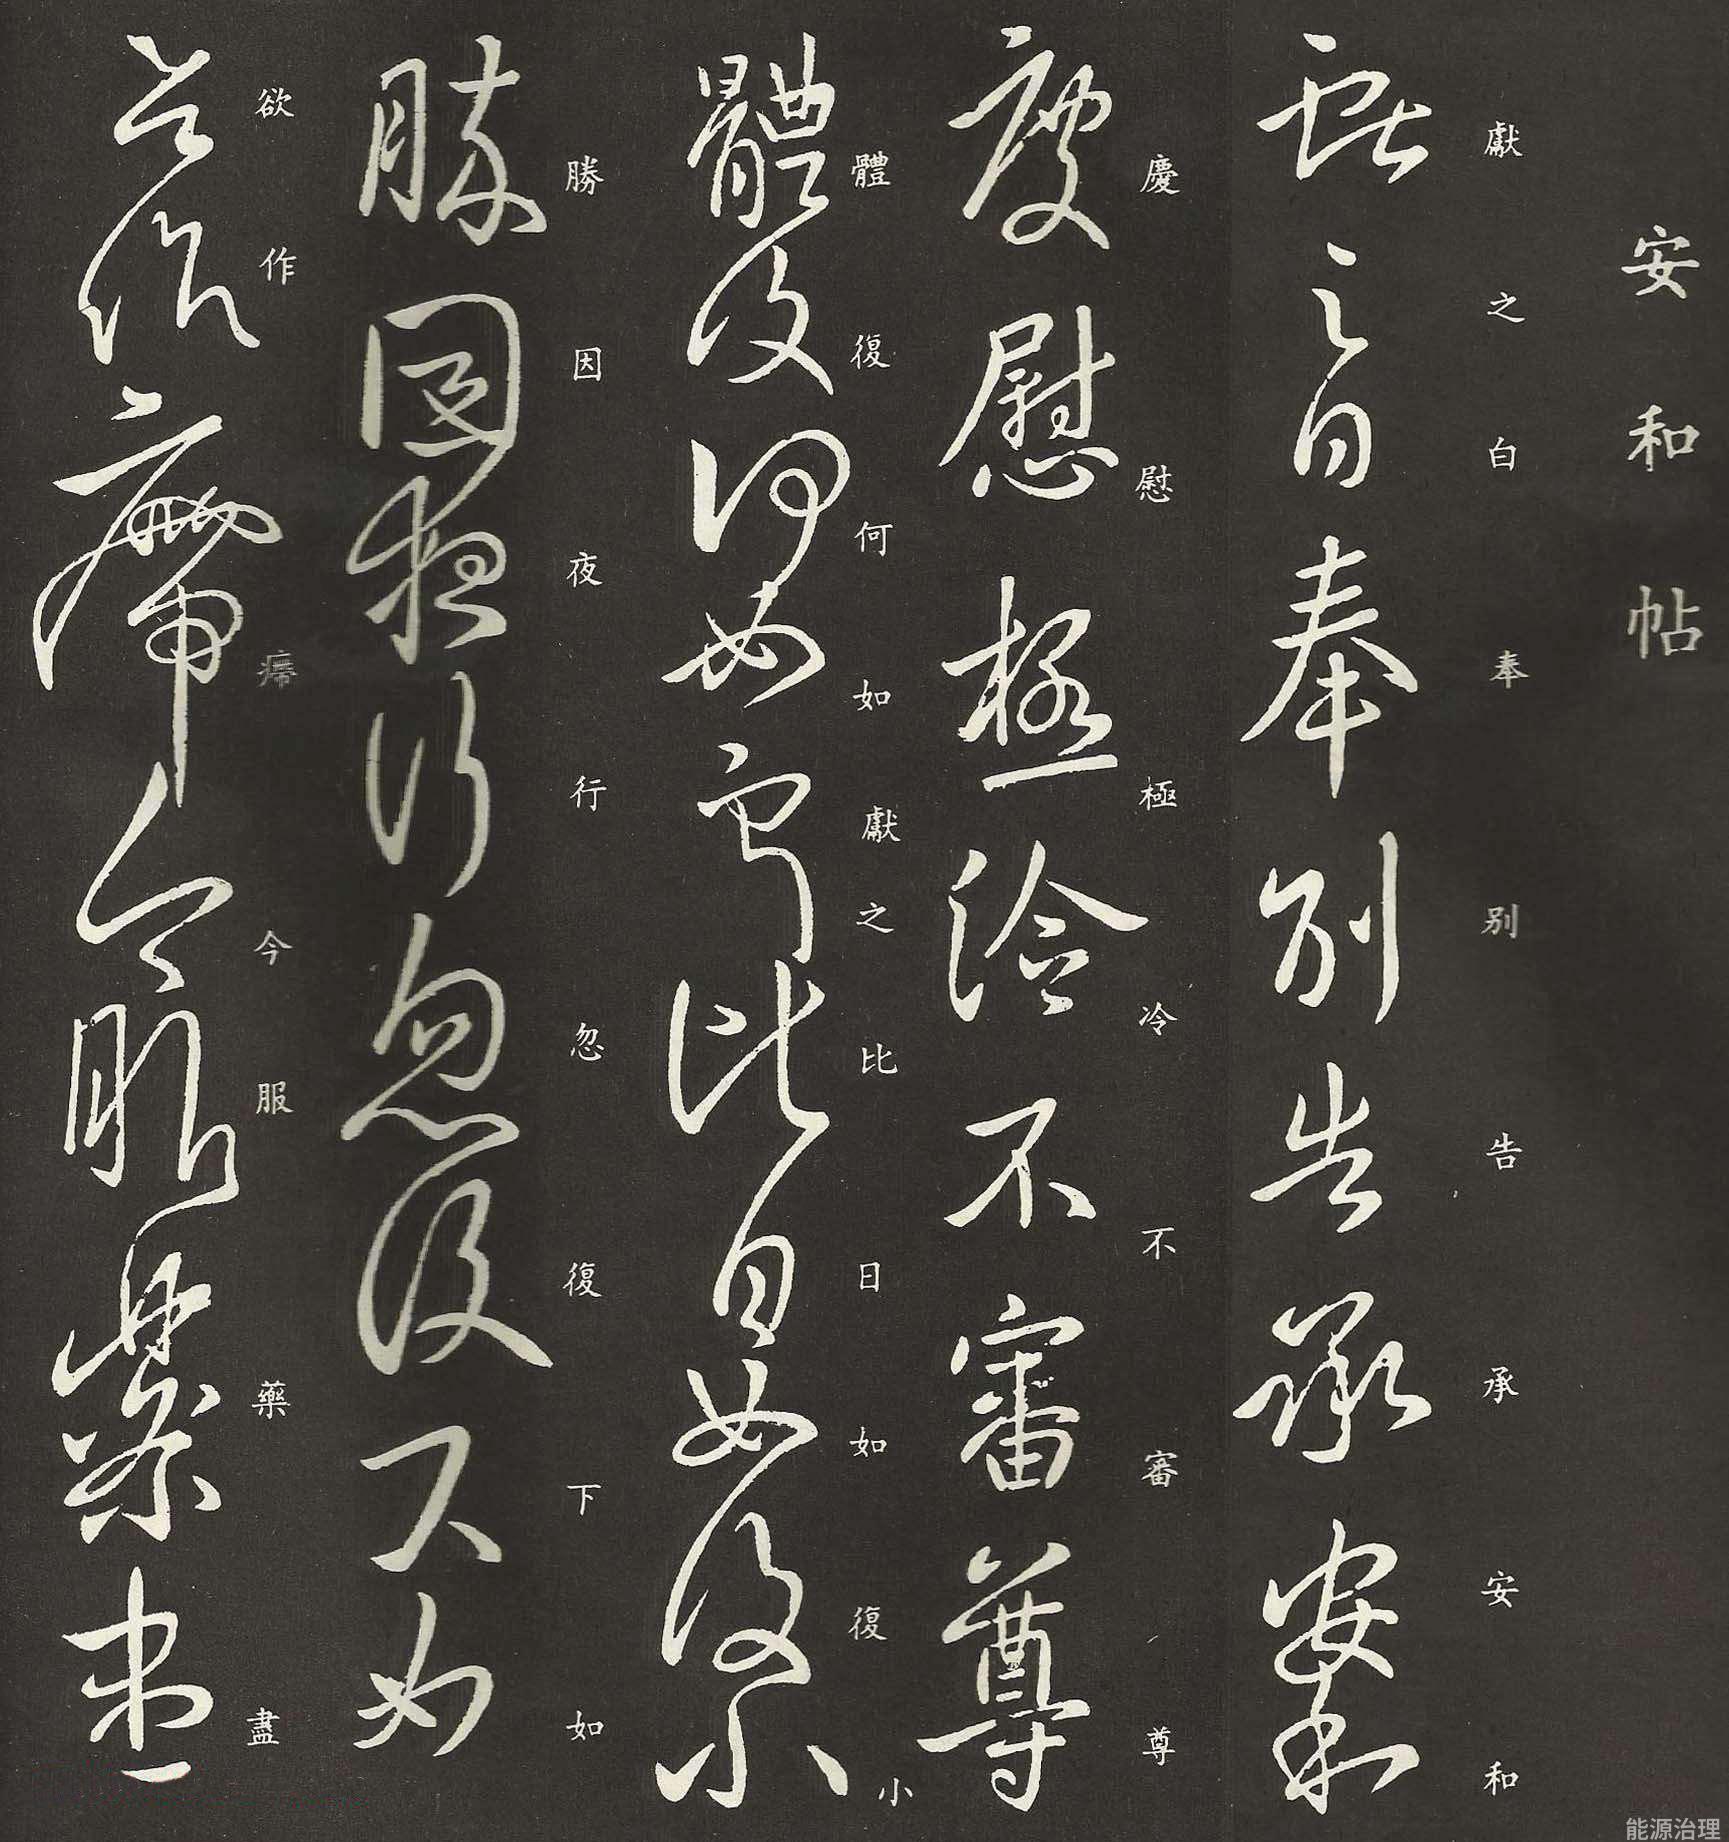 安和帖
獻之白奉别告承安和
慶慰極冷不審尊
體復何如獻之比日如復小
勝因夜行忽復下如
欲作今服藥盡
能源治理